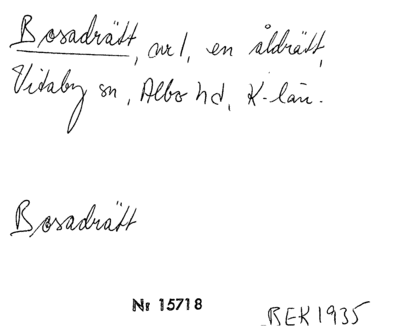 Bosadrätt, nr 1, en åldrätt,
Vitaby sn, Albo hd, K-län.
Bosadrätt
Nr 15718
REK 1935